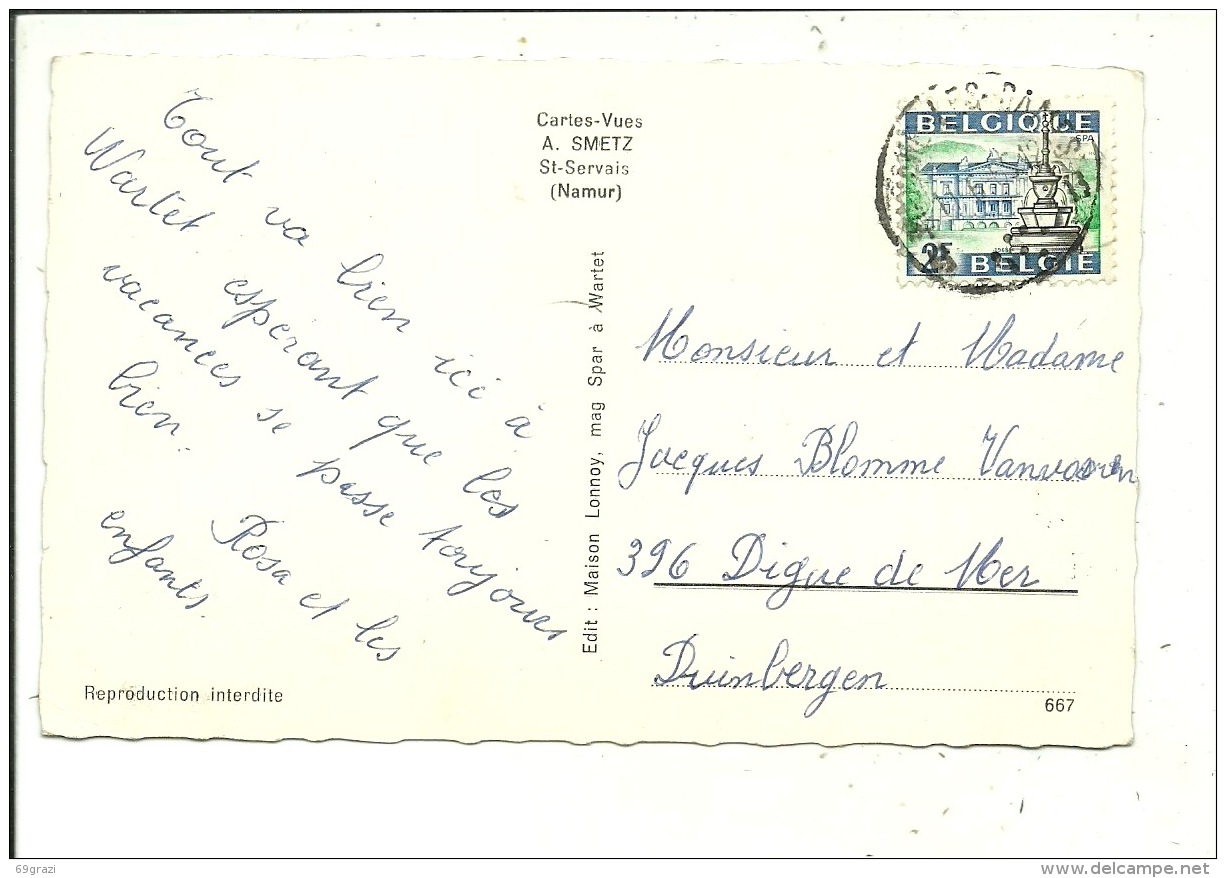 Tout va bien ici à
Wartet. espérant que les
vacances se passe toujours
bien.
Rosa et les
enfants.
Reproduction interdite
Cartes-Vues
A. SMETZ
St-Servais
(Namur)
Edit : Maison Lonnoy, mag Spar à Wartet
BELGIQUE
SPA
25
BELGIË
Monsieur et Madame
Jacques Blomme
396 Digue de Mer
Duinbergen
667
69grazi
www.delcampe.net